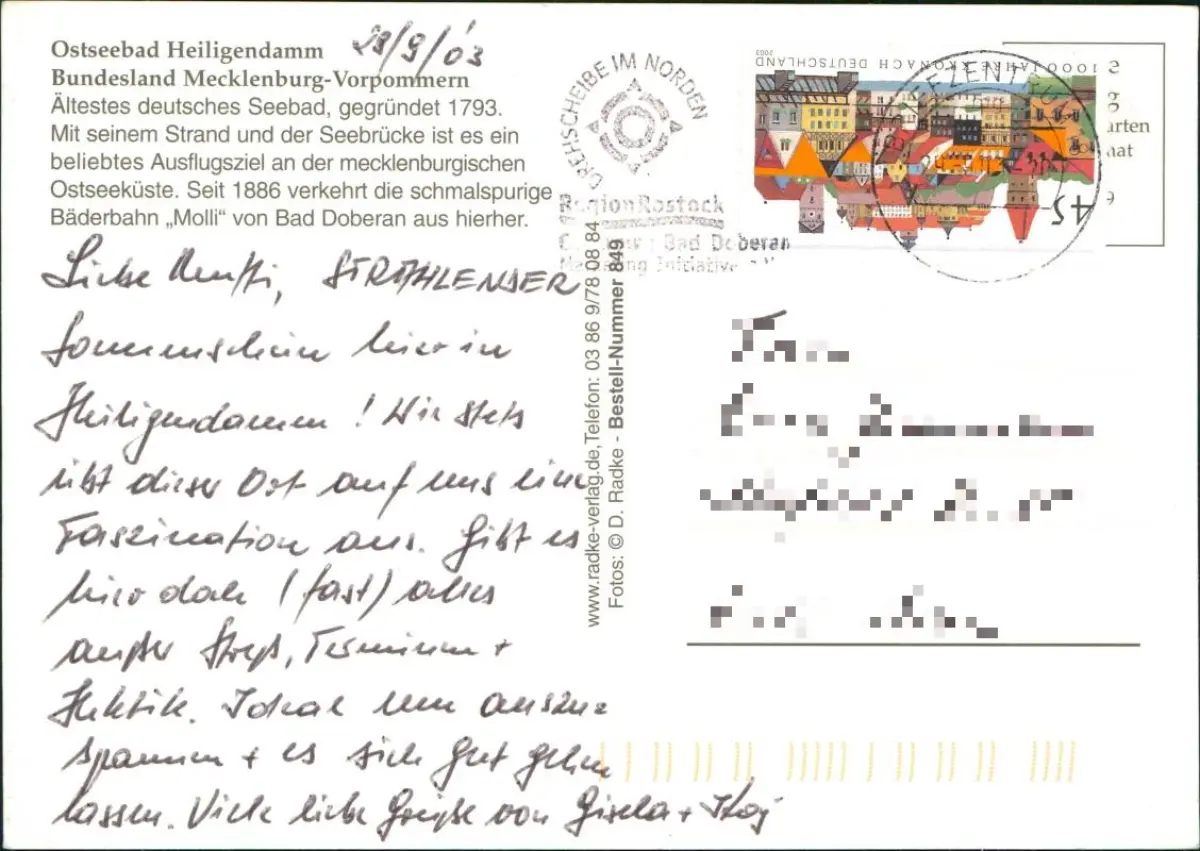 Ostseebad Heiligendamm
28/9/03
Bundesland Mecklenburg-Vorpommern
Ältestes deutsches Seebad, gegründet 1793.
Mit seinem Strand und der Seebrücke ist es ein
beliebtes Ausflugsziel an der mecklenburgischen
Ostseeküste. Seit 1886 verkehrt die schmalspurige
Bäderbahn „Molli“ von Bad Doberan aus hierher.
Liebe STRAHLENDER
Sonnenschein hier in
Heiligendamm! Wie stets
übt dieser Ort auf uns eine
Faszination aus. Gibt es
hier doch (fast) alles
außer Streß, Terminen +
Hektik. Ideal um auszu=
spannen + es sich gut gehen
lassen. Viele liebe Grüße von Gisela +
www.radke-verlag.de, Telefon: 03 86 9/78 08 84
Fotos: © D. Radke - Bestell-Nummer 849
DREHSCHEIBE IM NORDEN
Region Rostock
Bad Doberan
Initiative
1000 JAHRE KRONACH DEUTSCHLAND
2003
45
BRIEFZENTRUM
arten